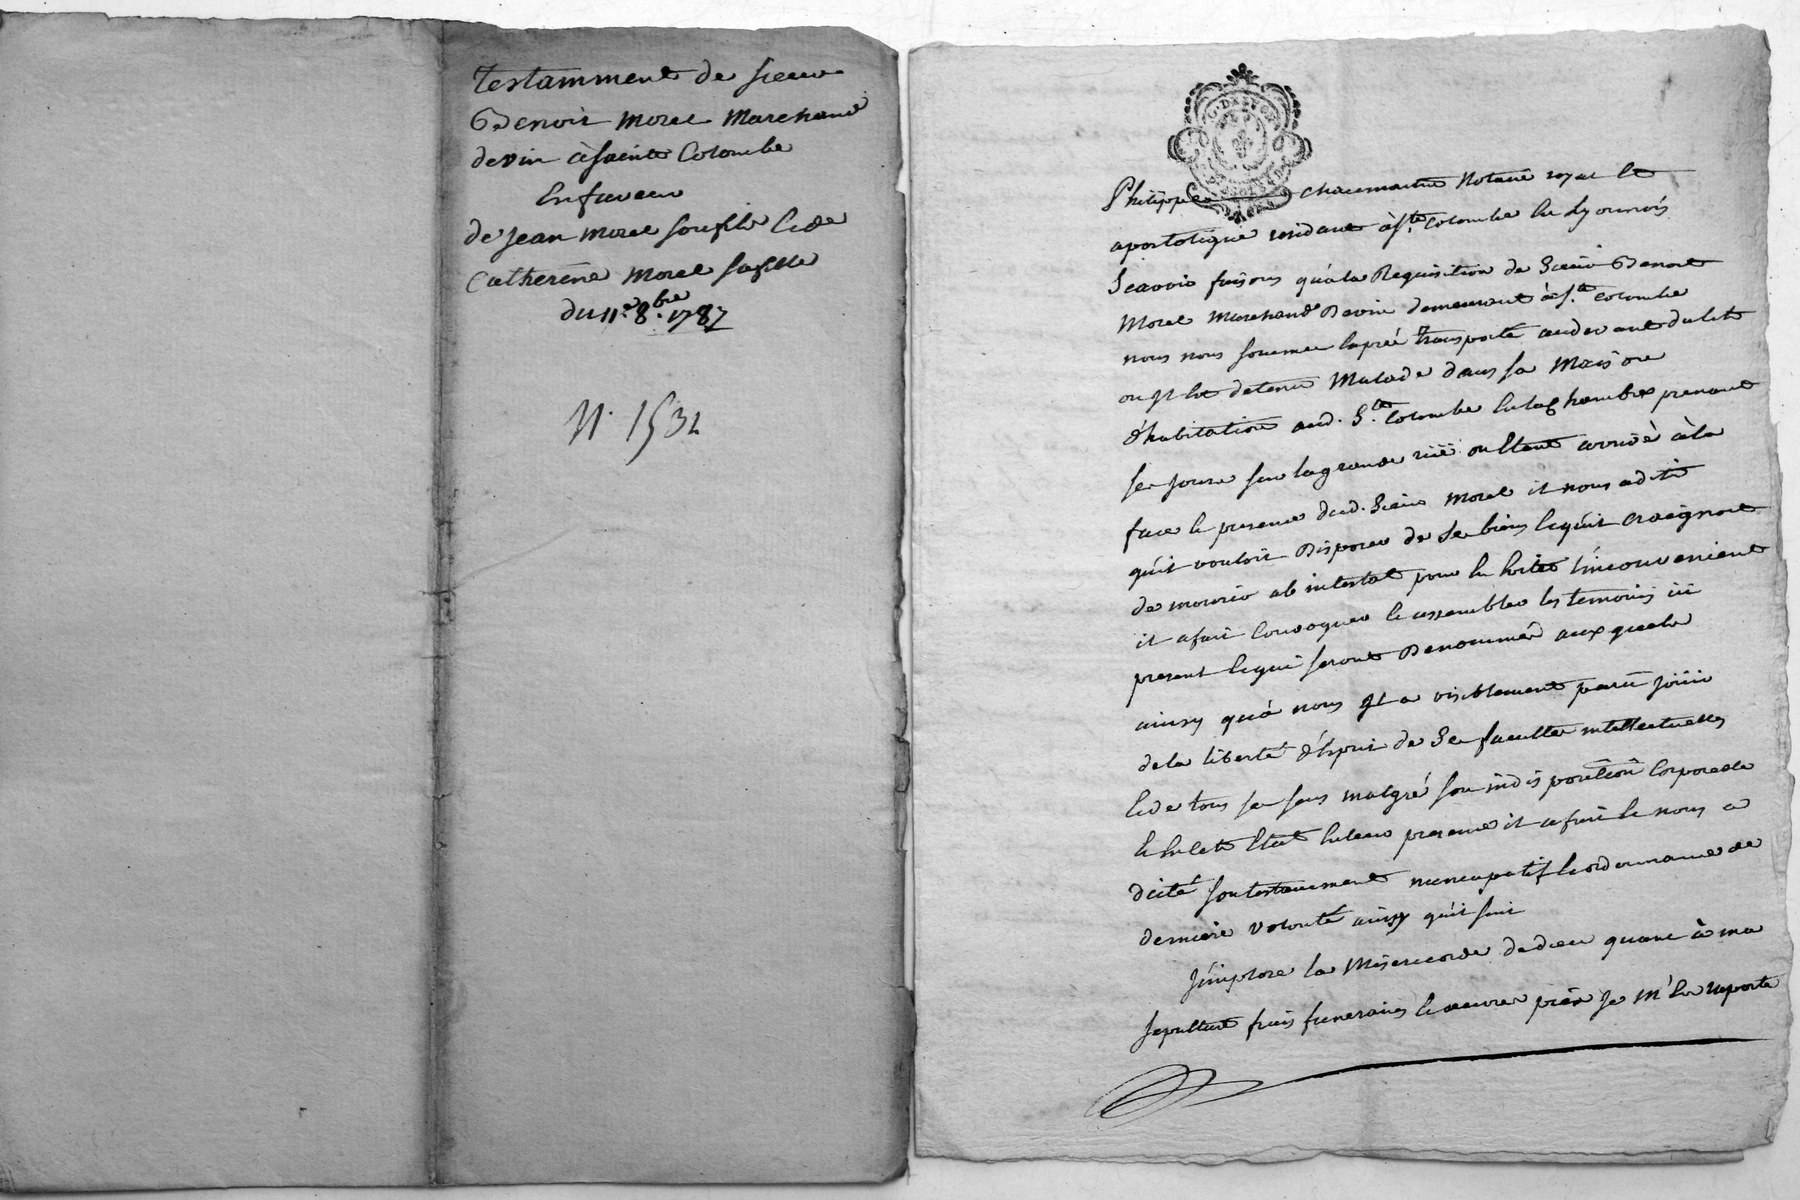 Testamment de sieur
Benoit morel Marchand
de vin à sainte Colombe
En faveur
de jean morel son fils Et de
Catherine Morel sa fille
du 11.e 8.bre 1787
N. 1532
Philippe chaumartin Notaire royal Et
apostolique residant à s.te Colombe En Lyonnois
Scavoir faisons qu'a la Requisition de Sieur Benoit
Morel Marchand De vin demeurant à s.te Colombe
nous nous sommes transporté audevant du lit
ou jl Est detenu Malade dans sa Maison
d'habitation aud. S.te Colombe En la chambre prenant
ses jours sur la grande rüe ou Etant arrivé à la
face Et presence dud. Sieur Morel il nous a dit
qu'il vouloit Disposer de Ses biens Et qu'il craignoit
de mourir ab intestat pour En Eviter l'inconvenient
il a fait Convoquer Et assembler les temoins icy
present Et qui seront Denommés aux quels
ainsy qu'a nous jl a visiblement paru joüir
de la liberté d'Esprit de Ses facultés intellectuelles
Et de tous ses sens malgré son indisposition Corporelle
Et En Cet Etat En leur presence il a fait Et nous a
dicté son testamment nuncupatif Et ordonnance de
derniere volonté ainsy qu'il suit
J'implore la Misericorde de dieu quant à ma
sepulture frais funeraires Et oeuvres pies Je M'En raporte